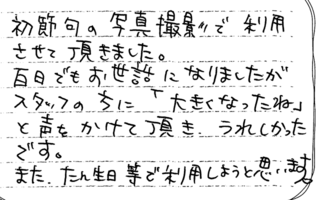 初節句の写真撮影で利用
させて頂きました。
百日でもお世話になりましたが
スタッフの方に「大きくなったね」
と声をかけて頂き、うれしかった
です。
また、たん生日等で利用しようと思います。